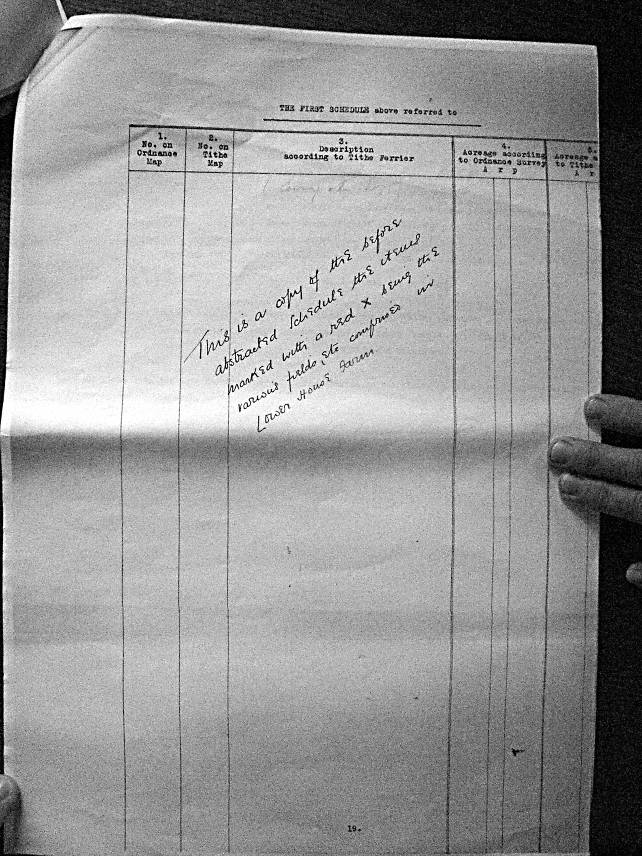 THE FIRST SCHEDULE above referred to
1.
No. on
Ordnance
Map
2.
No. on
Tithe
Map
3.
Description
according to Tithe Ferrier
4.
Acreage according
to Ordnance Survey
A r p
5.
Acreage a
to Tithe
A r
This is a copy of the before
abstracted Schedule the items
marked with a red x being the
various fields etc comprised in
Lower House Farm
19.